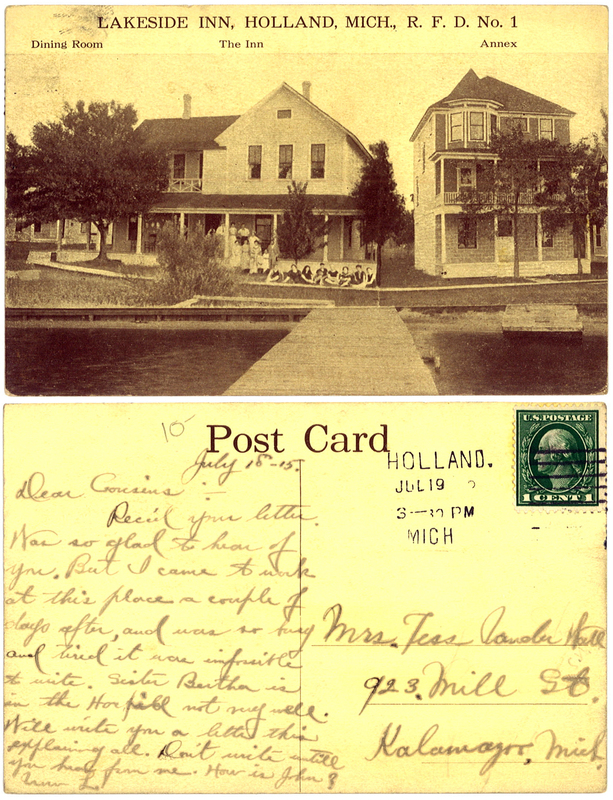 LAKESIDE INN, HOLLAND, MICH., R. F. D. No. 1
Dining Room The Inn Annex
10-
Post Card
July 18-15.
Dear Cousins:-
Rec'd your letter.
Was so glad to hear of
you. But I came to work
at this place a couple of
days after, and was so busy
and tired it was impossible
to write. Sister Bertha is
in the Hospital not very well.
Will write you a letter this
explaining all. Don't write untill
you hear from me. How is John?
L.
HOLLAND.
JUL 19
3-30 PM
MICH
U.S. POSTAGE
1 CENT 1
Mrs. Tess Vander
923. Mill St.
Kalamazoo, Mich.